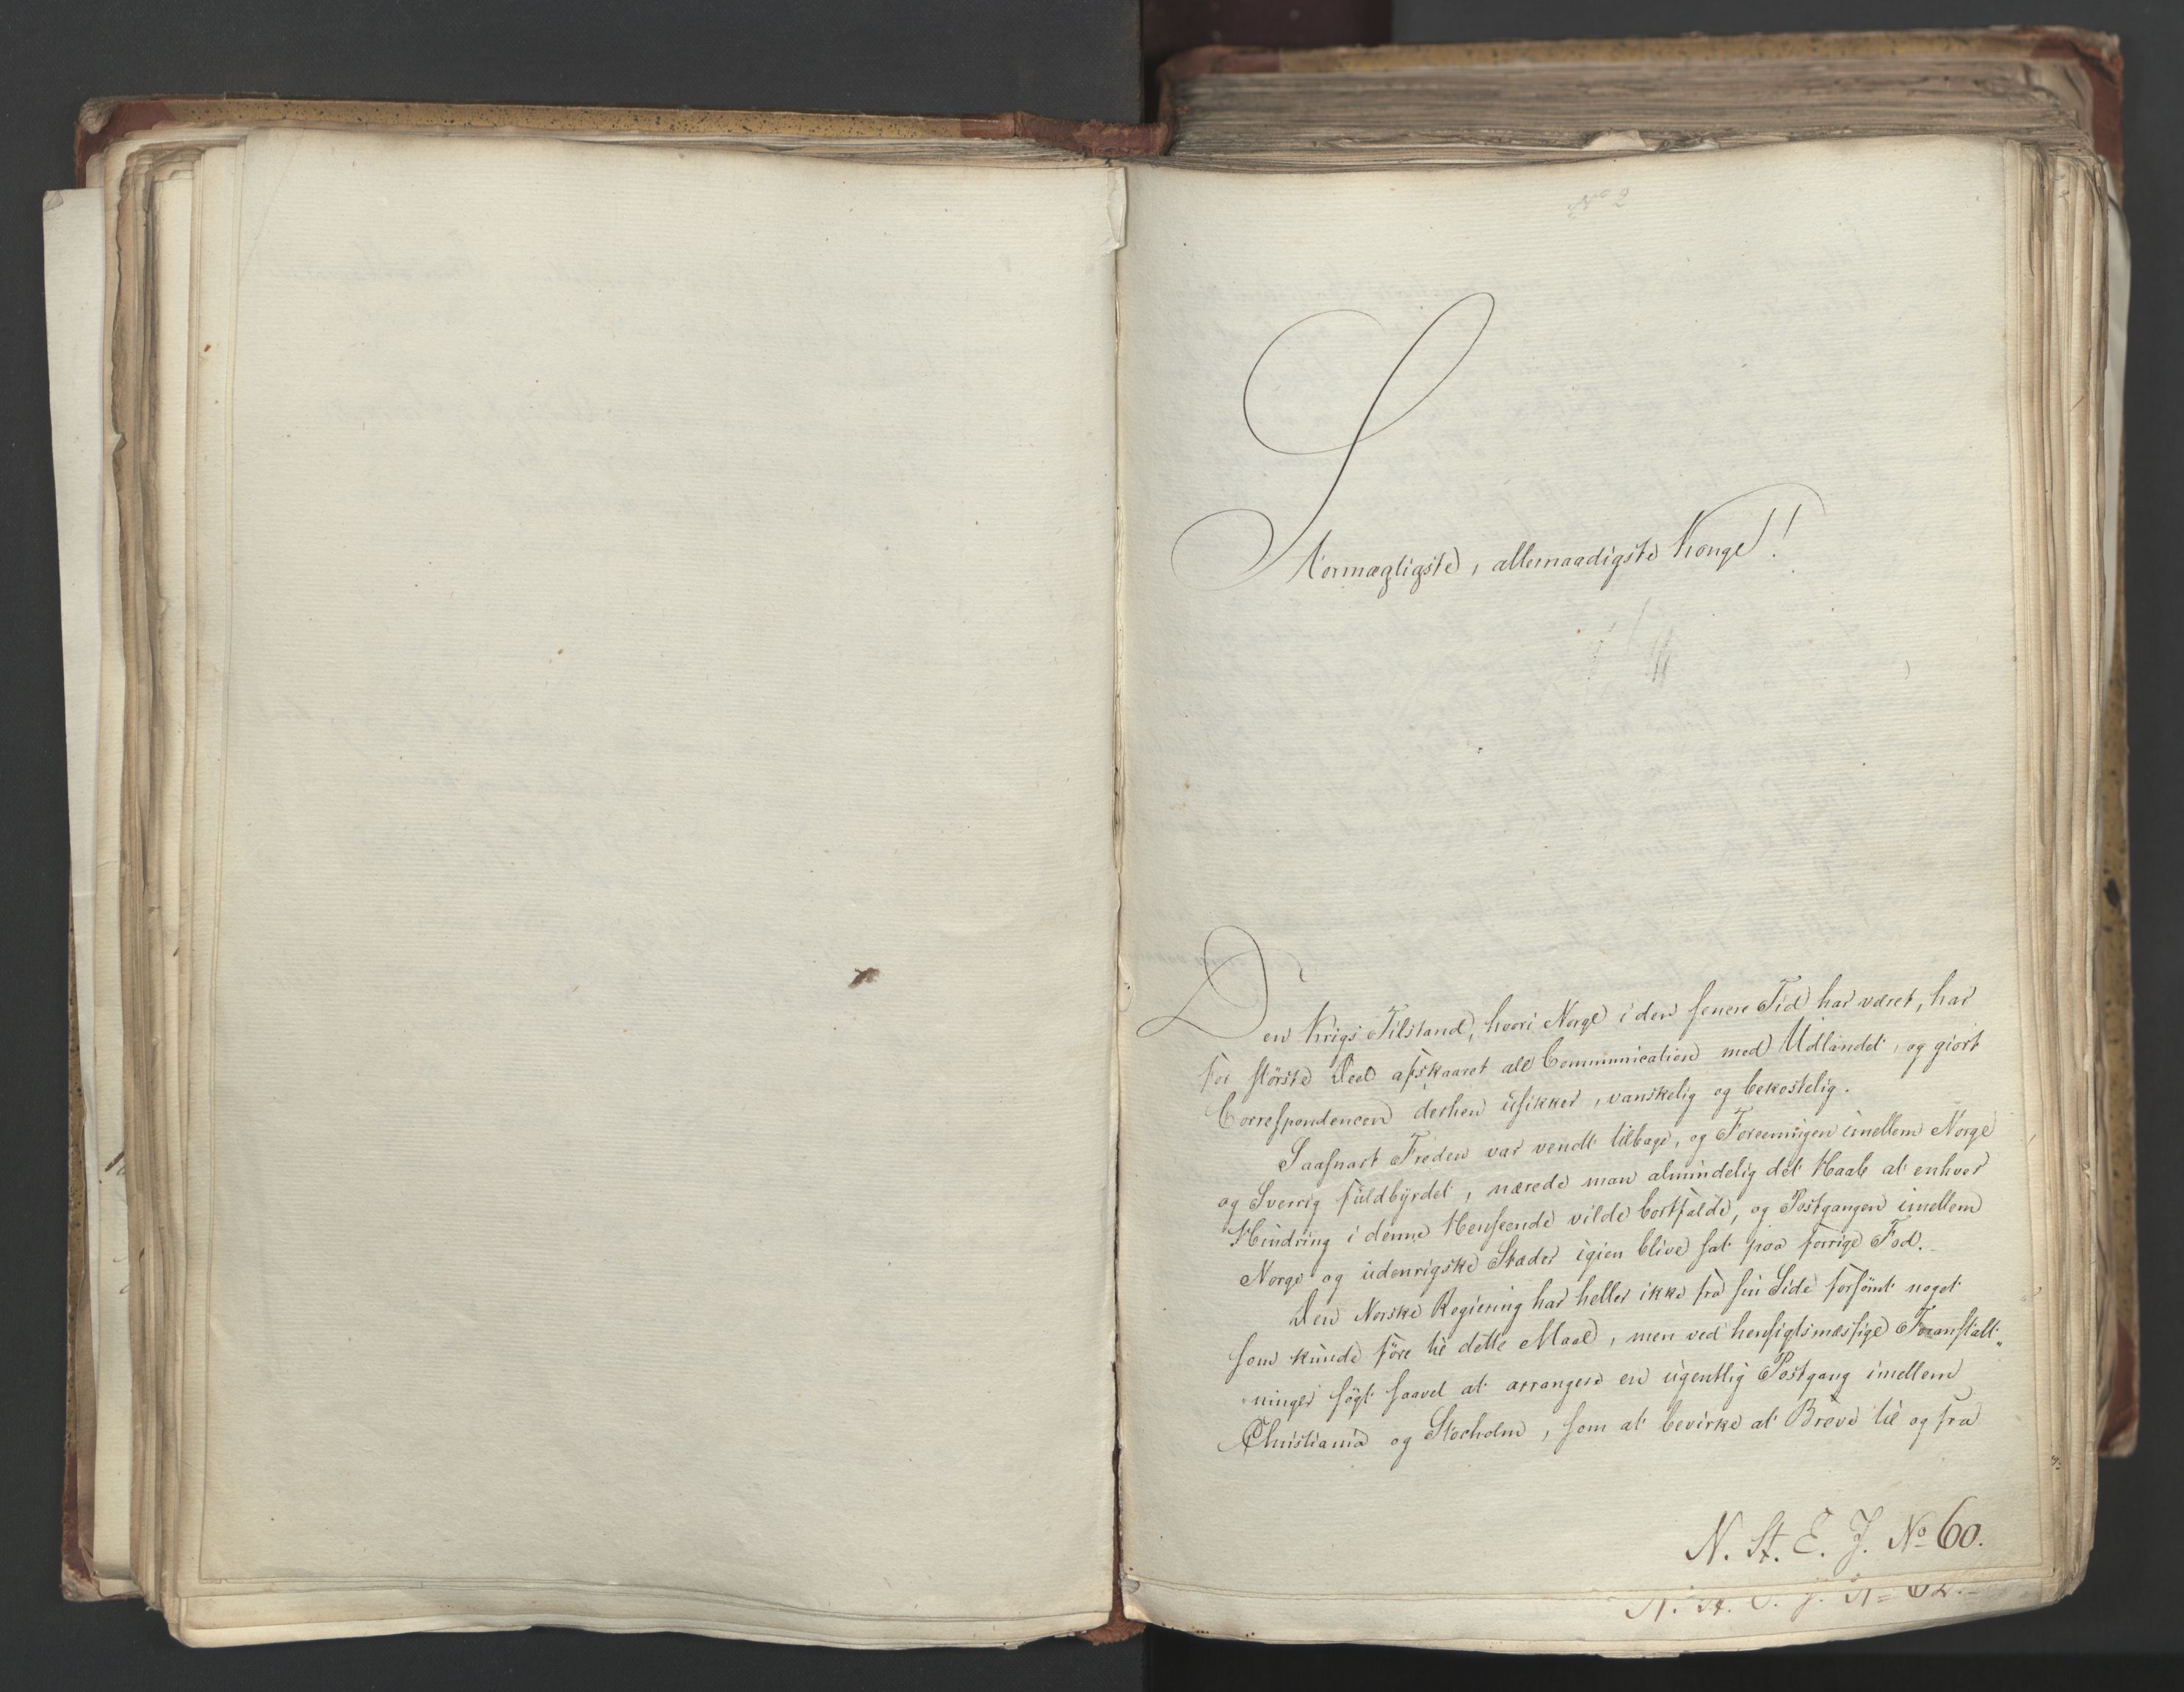 No 2
Stormægtigste, allernaadigste Konge!
Den Krigs Tilstand, hvori Norge i den senere Tid har været, har
for störste Deel afskaaret all Communication med Udlandet, og giort
Correspondencen derhen usikker, vanskelig og bekostelig.
Saasnart Freden var vendt tilbage, og Foreeningen imellem Norge
og Sverrig fuldbyrdet, nærede man almindelig det Haab at enhver
Hindring i denne Henseende vilde bortfalde, og Postgangen imellem
Norge og udenrigske Stæder igien blive sat paa forrige Fod.
Den Norske Regiering har heller ikke fra sin Side forsömt noget
som kunde före til dette Maal, men ved hensigtsmæssige Foranstalt„
„ninger sögt saavel at arrangere en ugentlig Postgang imellem
Christiania og Stocholm, som at bevirke at Breve til og fra
N. St. E. J. No 60.